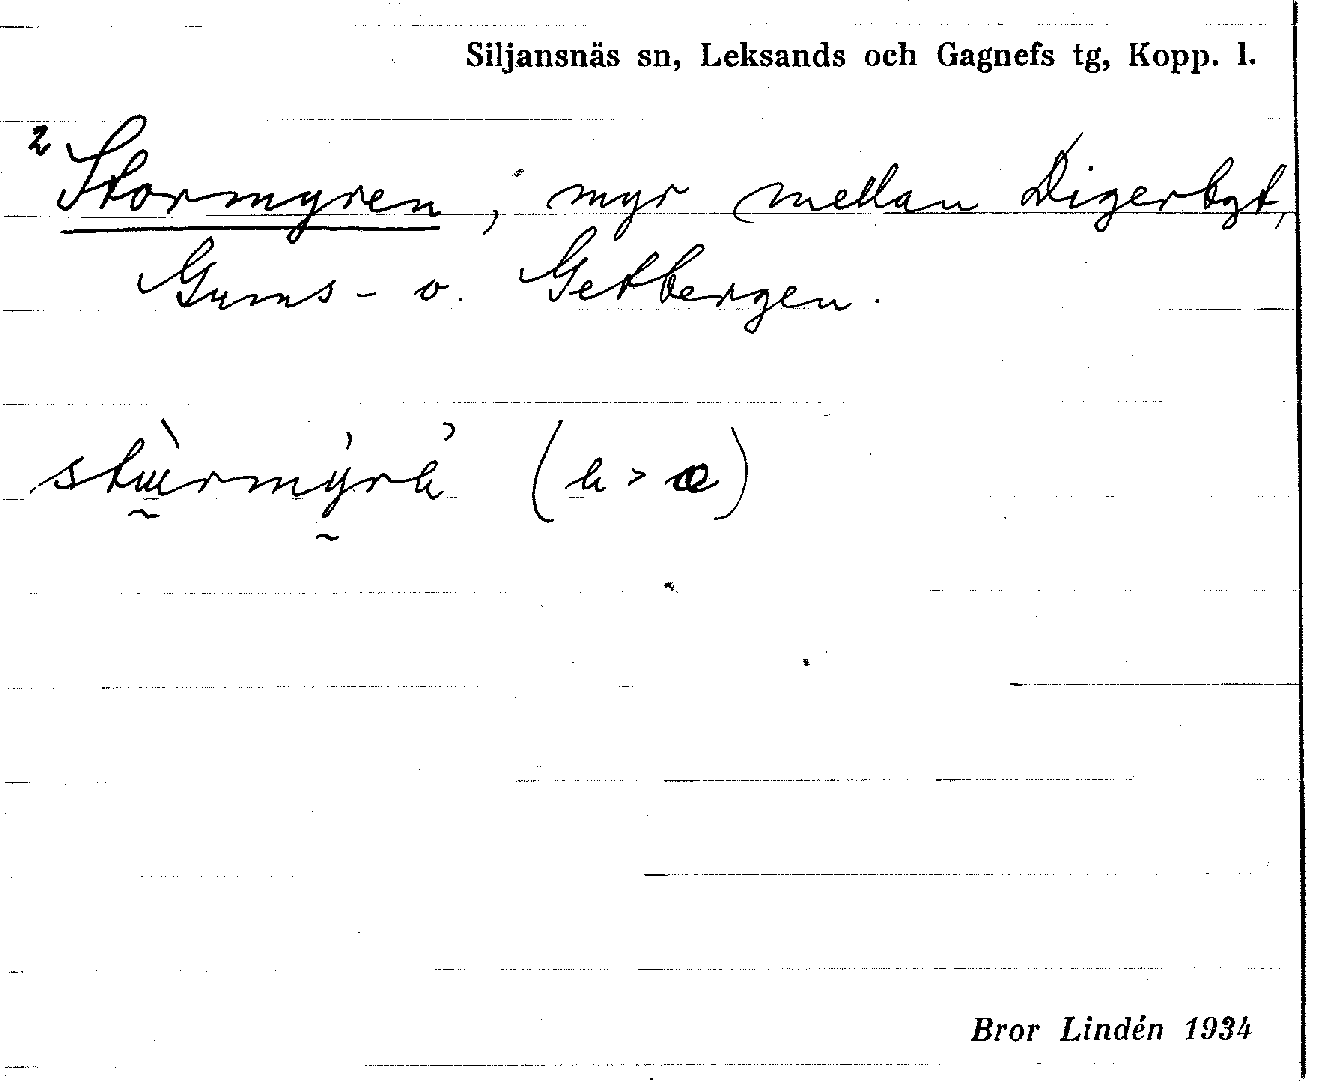 Siljansnäs sn, Leksands och Gagnefs tg, Kopp. l.
2 Stormyren, myr mellan Digerbgt,
Gums- o. Getbergen.
Bror Lindén 1934